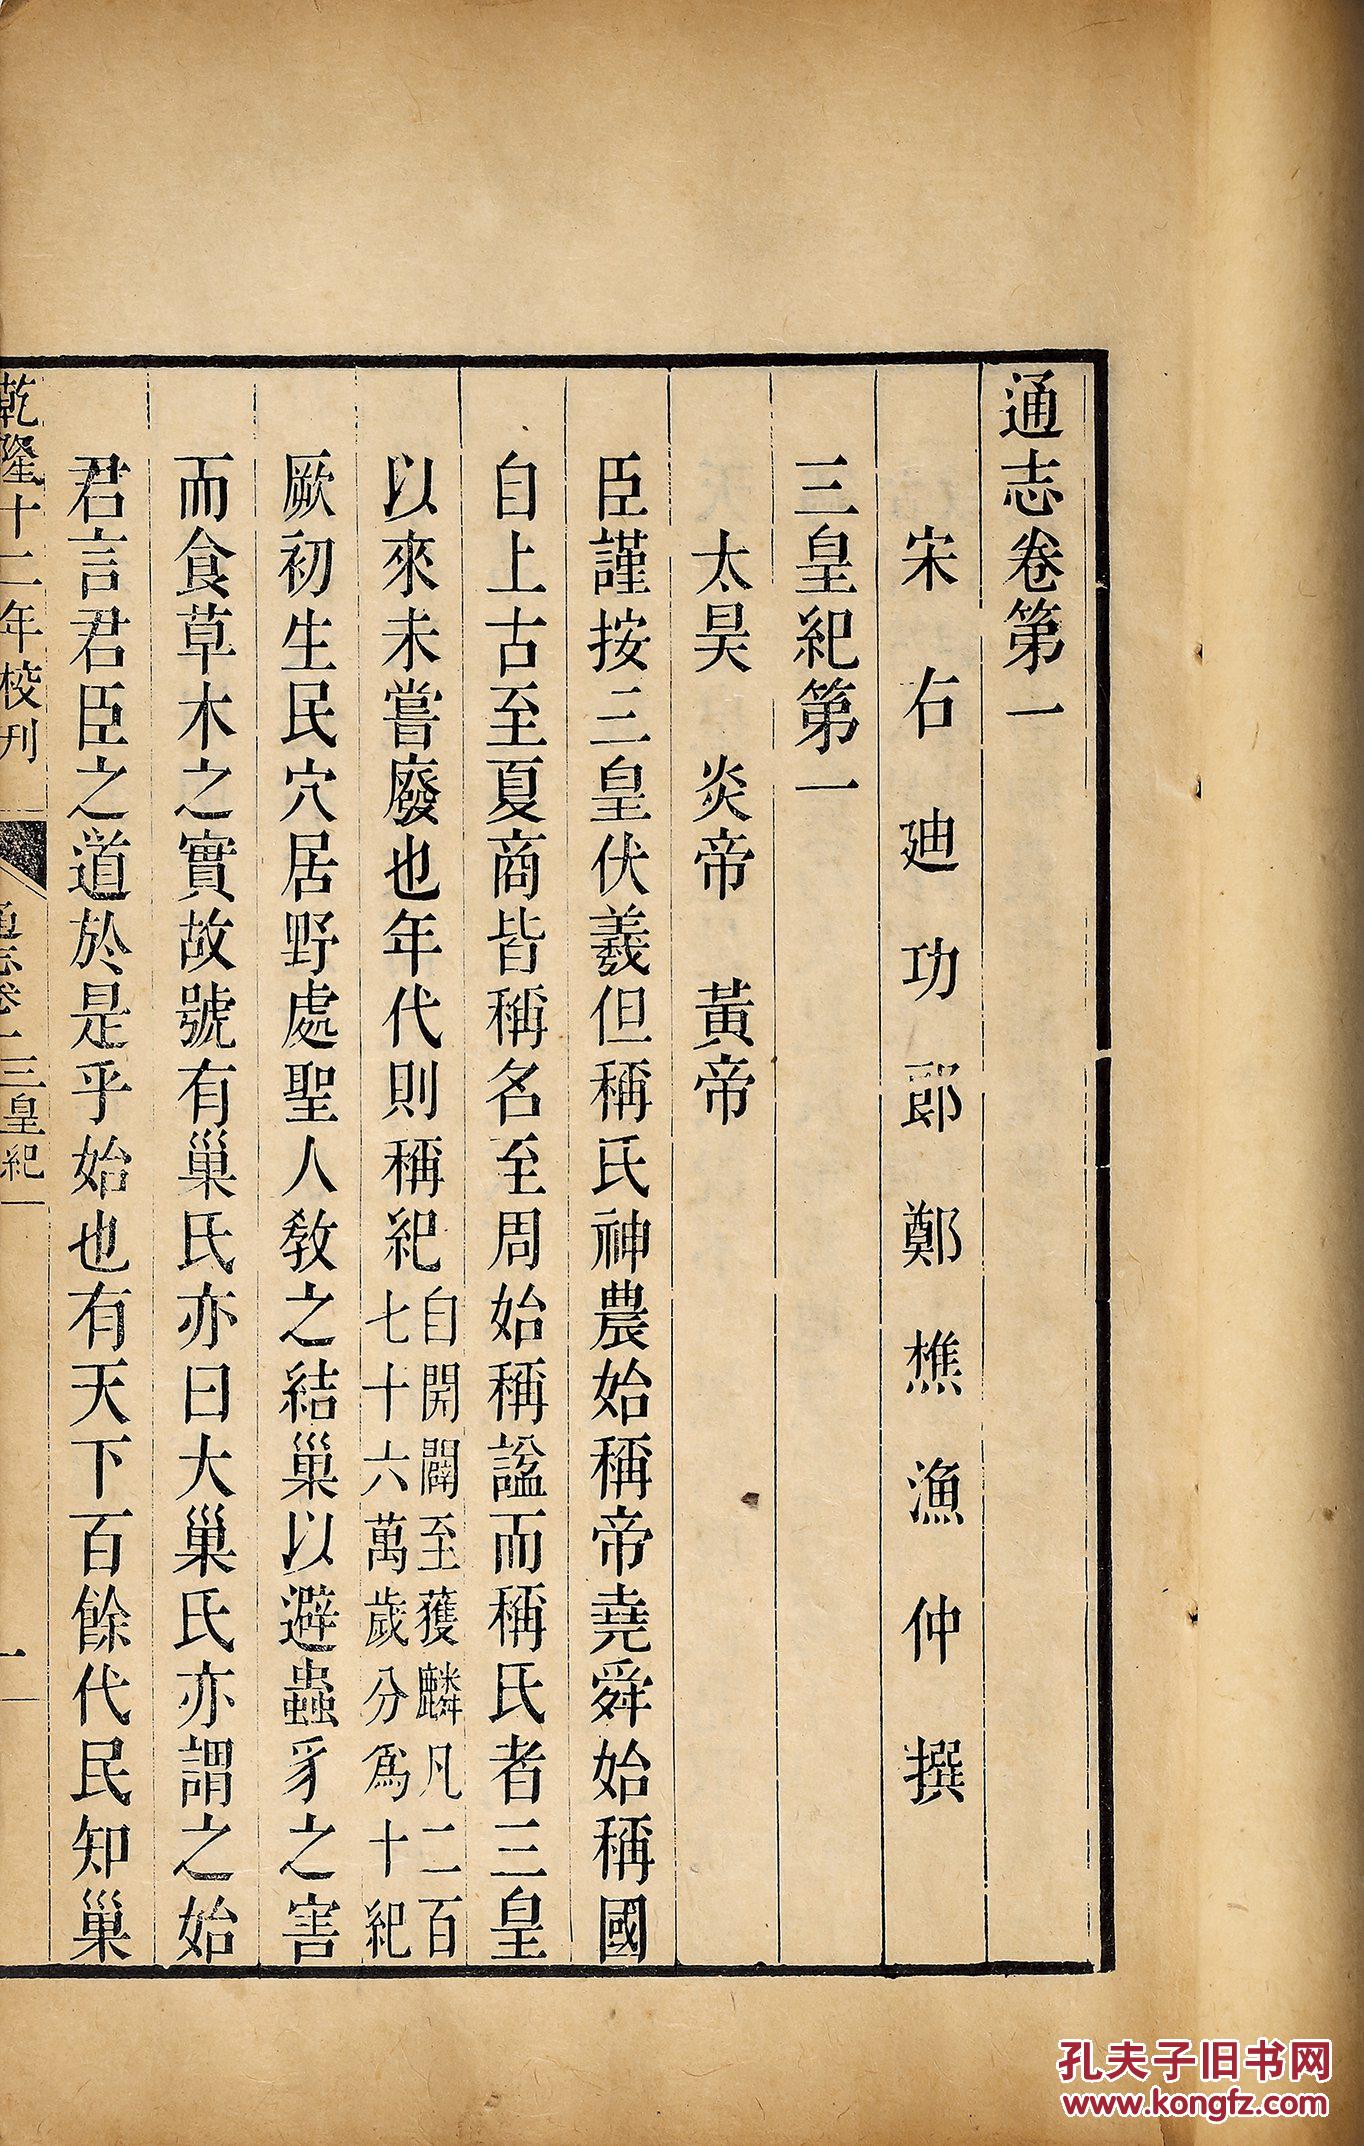 通志卷第一
宋右廸功郎鄭樵漁仲撰
三皇紀第一
太昊 炎帝 黃帝
臣謹按三皇伏羲但稱氏神農始稱帝堯舜始稱國
自上古至夏商皆稱名至周始稱諡而稱氏者三皇
以來未嘗廢也年代則稱紀自開闢至獲麟凡二百七十六萬歲分爲十紀
厥初生民穴居野處聖人敎之結巢以避蟲豸之害
而食草木之實故號有巢氏亦曰大巢氏亦謂之始
君言君臣之道於是乎始也有天下百餘代民知巢
乾隆十二年校刊 通志卷一 三皇紀一 一
孔夫子旧书网
www.kongfz.com